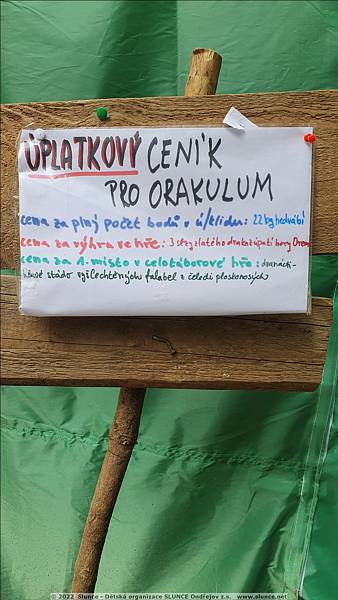 ÚPLATKOVÝ CENÍK
PRO ORAKULUM
cena za plný počet bodů v ú/klidu: 22 kg hedvábí
cena za výhra ve hře: 3 slzy zlatého draka z úpatí hory
cena za 1. místo v celotáborové hře: dvanácti-
hlavé stádo vyšlechtěných falabel z čeledi ploskorosých
© 2022 Slunce - Dětská organizace SLUNCE Ondřejov z.s. www.slunce.net